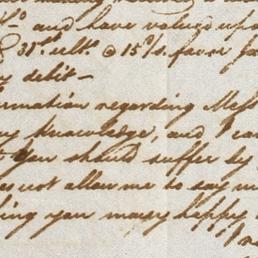 and have valued upon
31st ulto. @ 15 d/s. favor Ja
debit—
rmation regarding Mess
my knowledge, and I can
you should suffer by
es not allow me to say m
hing you many happy
I re